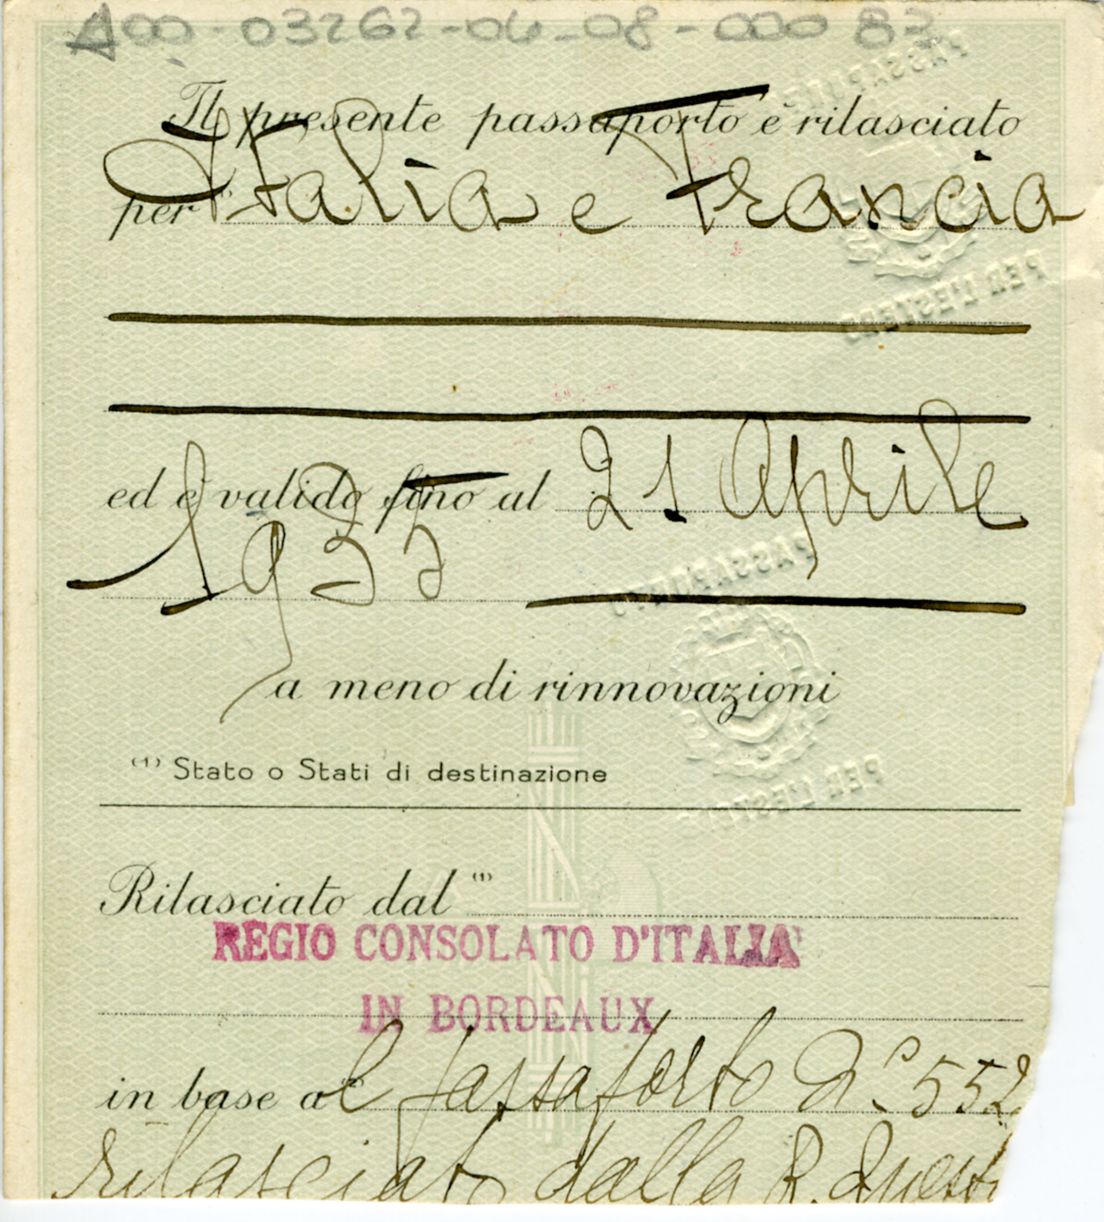 A00-03262-04-08-000 83
Il presente passaporto è rilasciato
per Italia e Francia
ed è valido fino al 21 Aprile
1935
a meno di rinnovazioni
(1) Stato o Stati di destinazione
Rilasciato dal (1)
REGIO CONSOLATO D'ITALIA
IN BORDEAUX
in base al passaporto N° 552
rilasciato dalla R. Quest
PASSAPORTO
PER L'ESTERO
PASSAPORTO
PER L'ESTERO